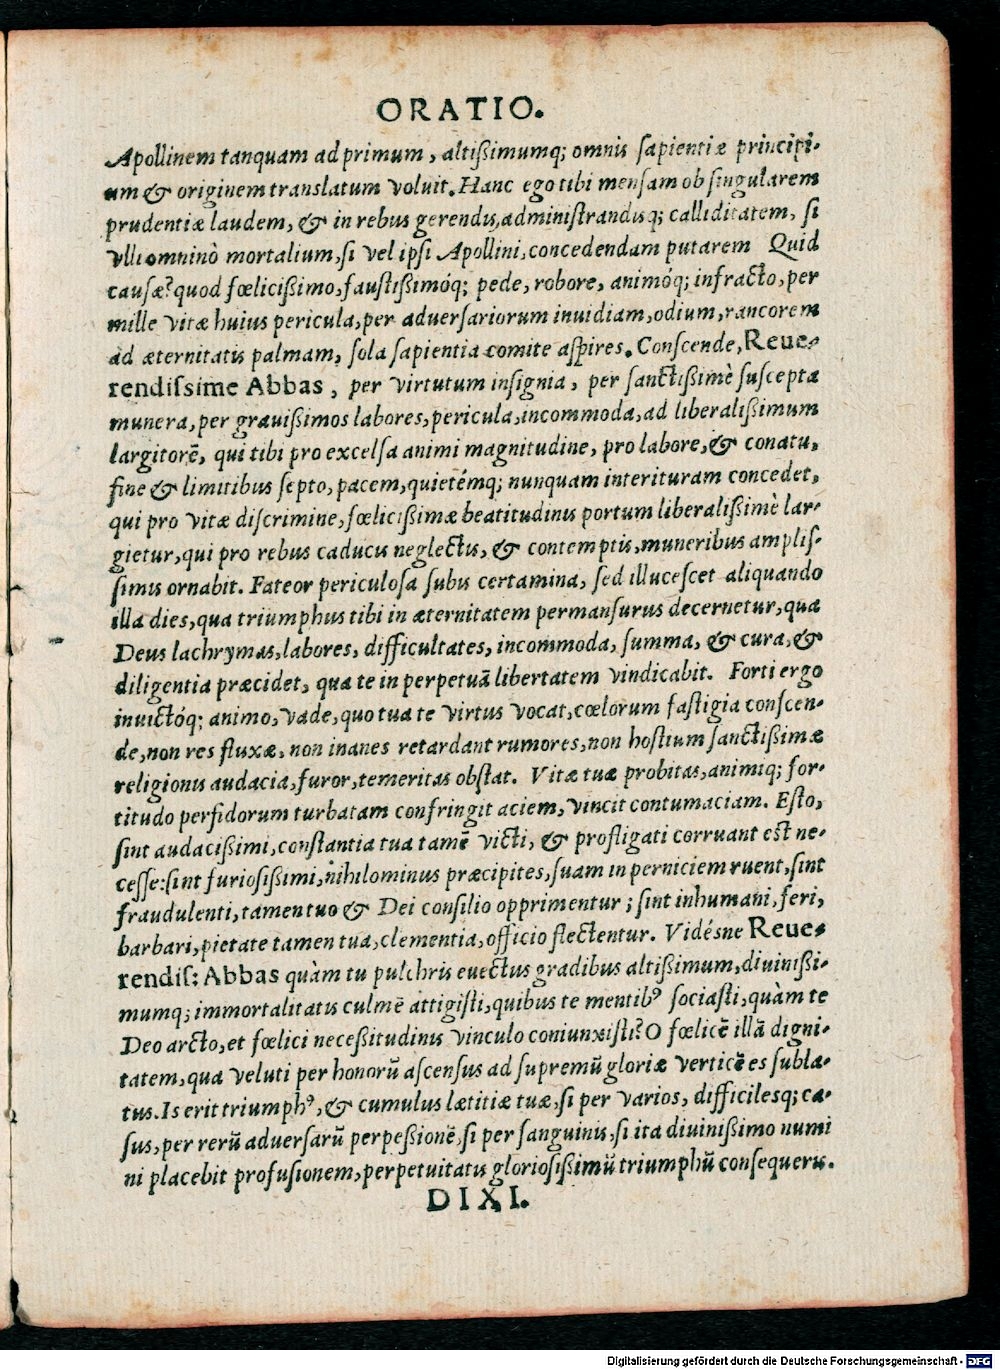 ORATIO.
Apollinem tanquam ad primum, altißimumq; omnis sapientiæ principi-
um & originem translatum voluit. Hanc ego tibi mensam ob singularem
prudentiæ laudem, & in rebus gerendis, administrandisq; calliditatem, si
vlli omninò mortalium, si vel ipsi Apollini, concedendam putarem Quid
causæ? quod fœlicißimo, faustißimóq; pede, robore, animóq; infracto, per
mille vitæ huius pericula, per aduersariorum inuidiam, odium, rancorem
ad æternitatis palmam, sola sapientia comite aspires. Conscende, Reue-
rendissime Abbas, per virtutum insignia, per sanctißimè susceptæ
munera, per grauißimos labores, pericula, incommoda, ad liberalißimum
largitorē, qui tibi pro excelsa animi magnitudine, pro labore, & conatu,
fine & limitibus septo, pacem, quietémq; nunquam interituram concedet,
qui pro vitæ discrimine, fœlicißimæ beatitudinis portum liberalißimè lar-
gietur, qui pro rebus caducis neglectis, & contemptis, muneribus amplis-
simis ornabit. Fateor periculosa subis certamina, sed illucescet aliquando
illa dies, qua triumphus tibi in æternitatem permansurus decernetur, qua
Deus lachrymas, labores, difficultates, incommoda, summa, & cura, &
diligentia præcidet, qua te in perpetuā libertatem vindicabit. Forti ergo
inuictóq; animo, vade, quo tua te virtus vocat, cœlorum fastigia conscen-
de, non res fluxæ, non inanes retardant rumores, non hostium sanctißimæ
religionis audacia, furor, temeritas obstat. Vitæ tuæ probitas, animiq; for-
titudo perfidorum turbatam confringit aciem, vincit contumaciam. Esto,
sint audacißimi, constantia tua tamē victi, & profligati corruant est ne-
cesse: sint furiosißimi, nihilominus præcipites, suam in perniciem ruent, sint
fraudulenti, tamen tuo & Dei consilio opprimentur; sint inhumani, feri,
barbari, pietate tamen tua, clementia, officio flectentur. Vidésne Reue-
rendis: Abbas quàm tu pulchris euectus gradibus altißimum, diuinißi-
mumq; immortalitatis culmē attigisti, quibus te mentibꝰ sociasti, quàm te
Deo arcto, et fœlici neceßitudinis vinculo coniunxisti? O fœlicē illā digni-
tatem, qua veluti per honorū ascensus ad supremū gloriæ verticē es subla-
tus. Is erit triumphꝰ, & cumulus lætitiæ tuæ, si per varios, difficilesq; ca-
sus, per rerū aduersarū perpeßionē, si per sanguinis, si ita diuinißimo numi
ni placebit profusionem, perpetuitatis gloriosißimū triumphū consequeris.
DIXI.
Digitalisierung gefördert durch die Deutsche Forschungsgemeinschaft - DFG